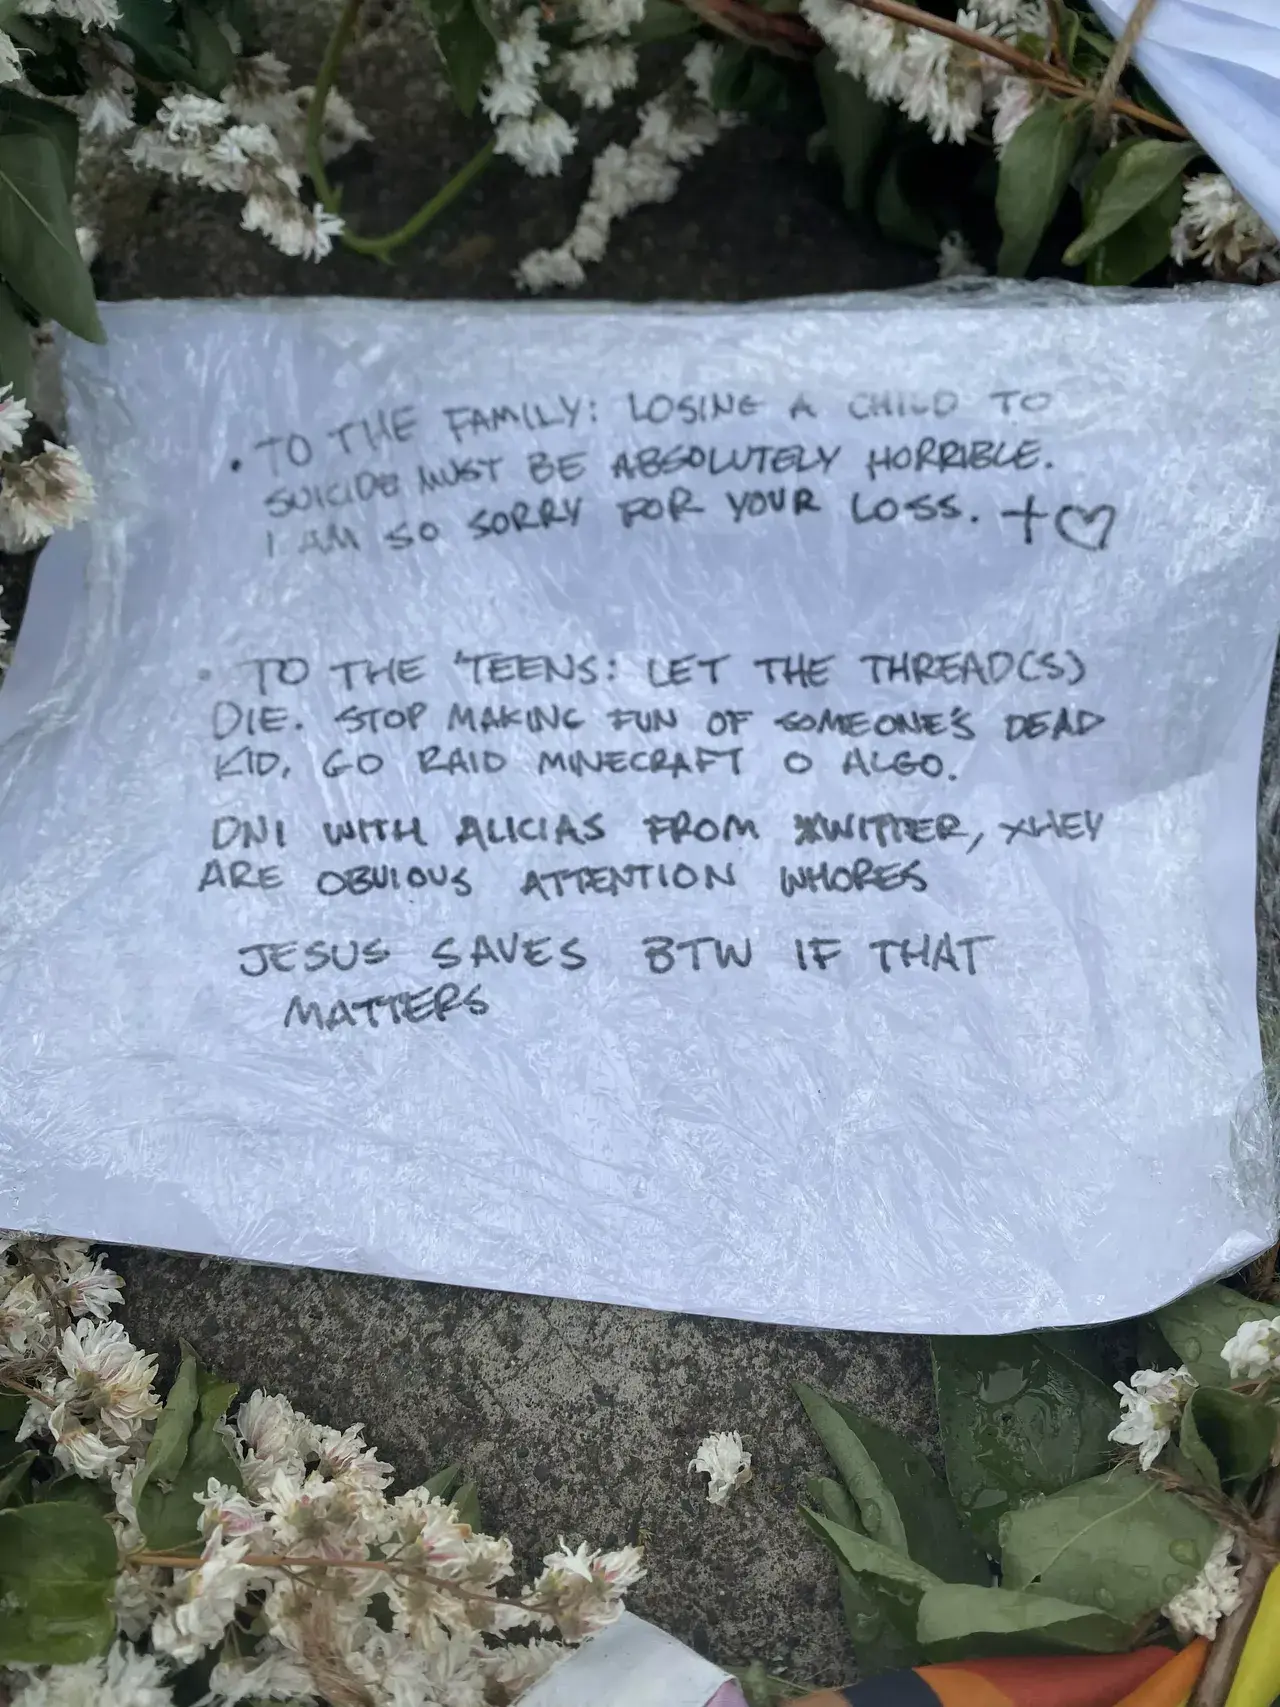 • TO THE FAMILY: LOSING A CHILD TO
SUICIDE MUST BE ABSOLUTELY HORRIBLE.
I AM SO SORRY FOR YOUR LOSS. +♡
• TO THE 'TEENS: LET THE THREAD(S)
DIE. STOP MAKING FUN OF SOMEONE'S DEAD
KID, GO RAID MINECRAFT O ALGO.
DNI WITH ALICIAS FROM XWITTER, XHEY
ARE OBVIOUS ATTENTION WHORES
JESUS SAVES BTW IF THAT
MATTERS